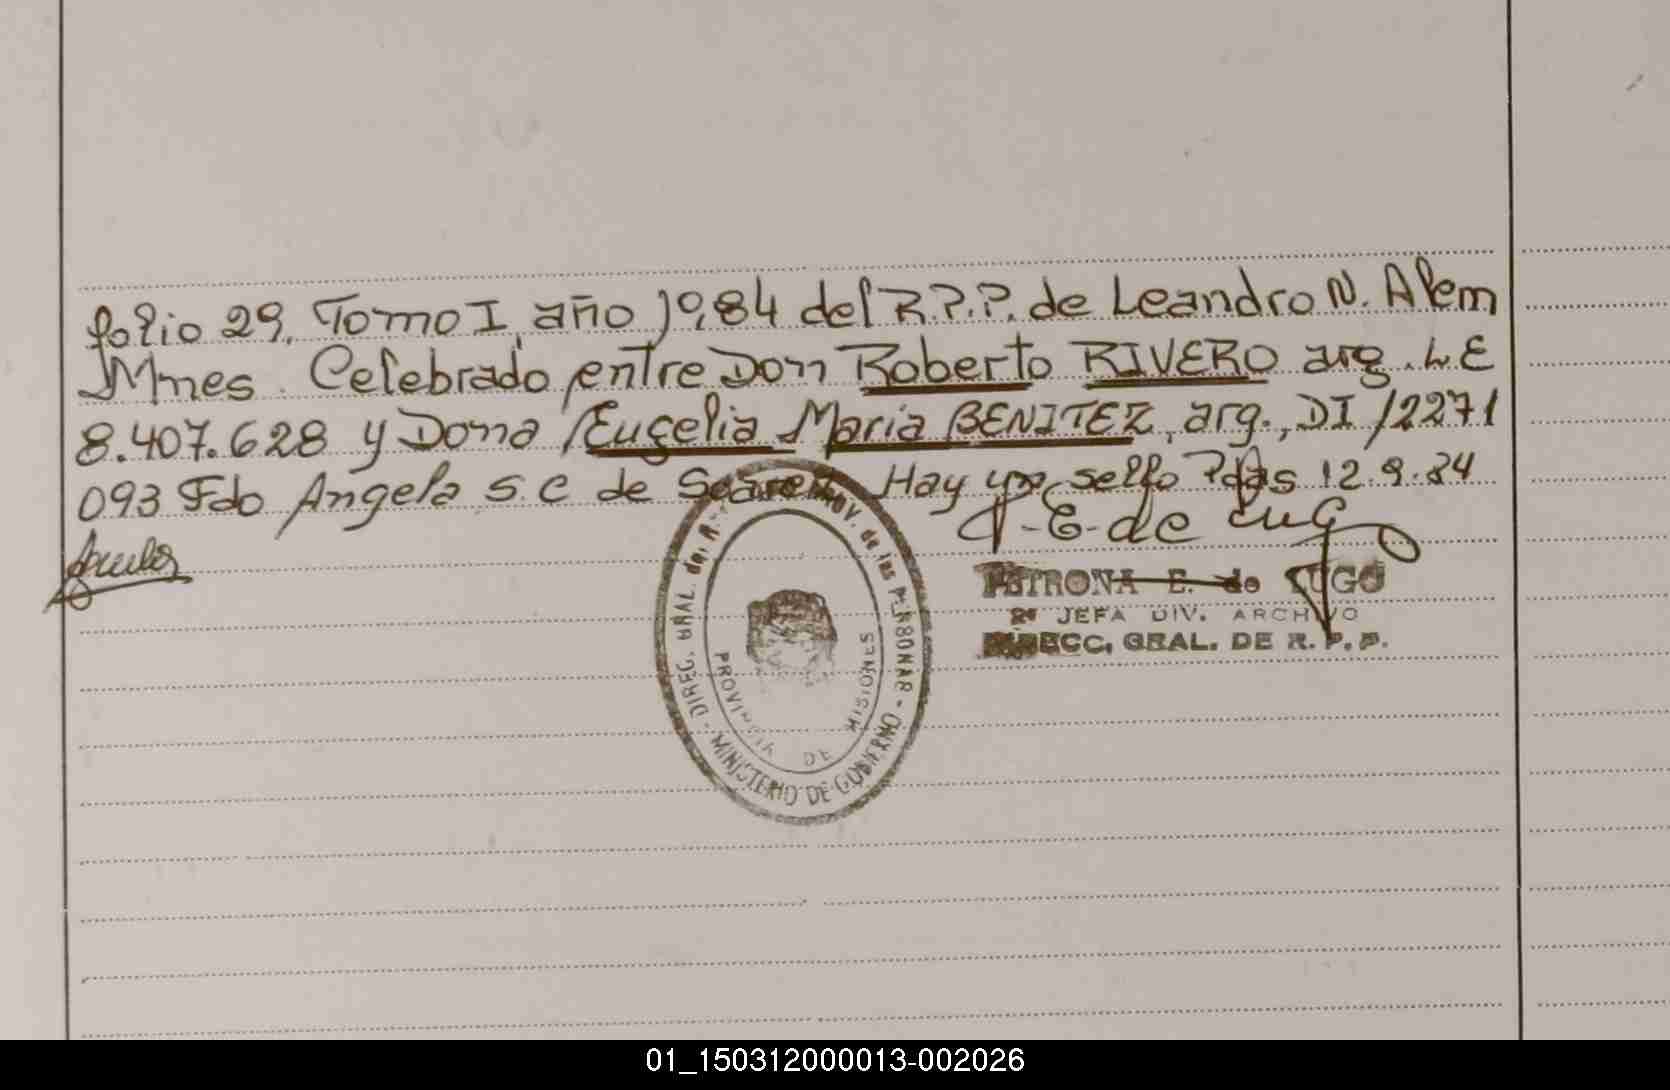 folio 29, Tomo I, año 1984 del R.P.P. de Leandro N. Alem
Mnes. Celebrado entre Don Roberto RIVERO arg. L.E
8.407.628 y Doña Eugelia Maria BENITEZ, arg., DI 12271
093 Fdo Angela S. C de Suarez. Hay un sello Pdas 12.9.84
P. E. de Lugo
PETRONA E. de LUGO
2º JEFA DIV. ARCHIVO
DIRECC. GRAL. DE R. P. P.
DIREC. GRAL. del ROV. de las PERSONAS - MINISTERIO DE GOBIERNO
PROVINCIA DE MISIONES
01_150312000013-002026